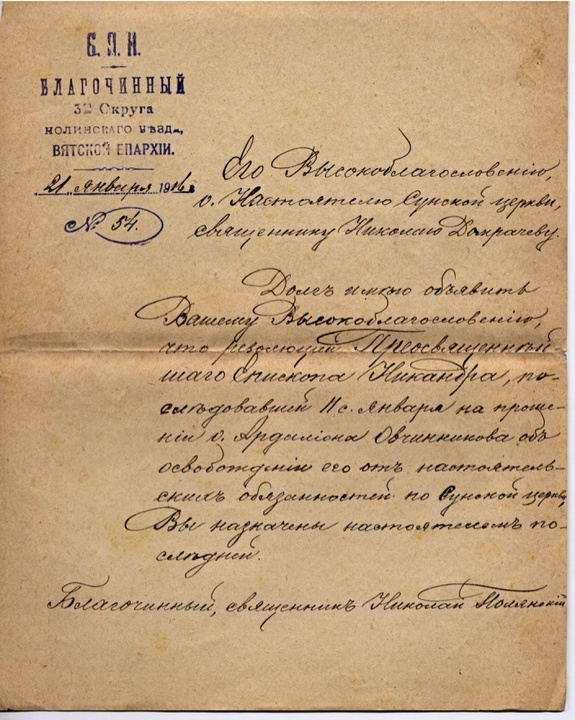 Б. П. И.
БЛАГОЧИННЫЙ
3го Округа
НОЛИНСКАГО УѢЗДА,
ВЯТСКОЙ ЕПАРХІИ.
21 января 1916 г.
№ 54.
Его Высокоблагословенію,
о. Настоятелю Сунской церкви,
священнику Николаю Домрачеву.
Долгъ имѣю объявить
Вашему Высокоблагословенію,
что резолюціей Преосвященнѣй
шаго Епископа Никандра, по-
слѣдовавшей 11 с. Января на проше-
ніи о. Ардаліона Овчинникова объ
освобожденіи его отъ настоятель-
скихъ обязанностей по Сунской церкви,
Вы назначены настоятелемъ по-
слѣдней.
Благочинный, священникъ Николай Полянскій